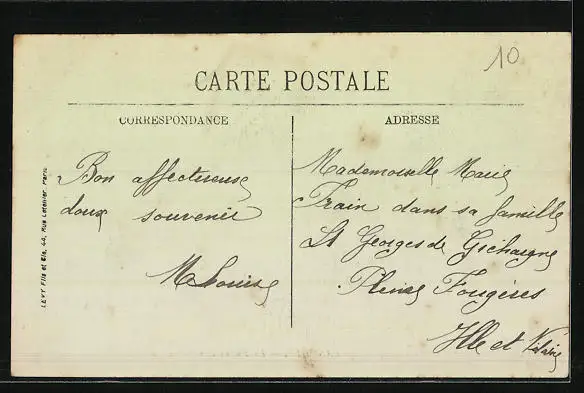 10
CARTE POSTALE
CORRESPONDANCE
ADRESSE
Bon affectueuse
doux souvenir
M Louise
Mademoiselle Marie
Train dans sa famille
St Georges de
Fougères
Ille et Vilaine
LEVY Fils et Cie, 44, Rue Letellier, Paris